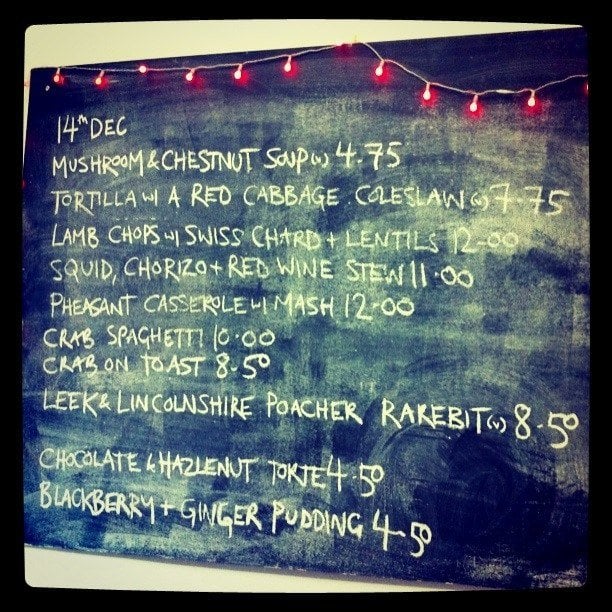 14th DEC
MUSHROOM & CHESTNUT SOUP (v) 4.75
TORTILLA w/ A RED CABBAGE COLESLAW (v) 7.75
LAMB CHOPS w/ SWISS CHARD + LENTILS 12-00
SQUID, CHORIZO + RED WINE STEW 11.00
PHEASANT CASSEROLE w/ MASH 12-00
CRAB SPAGHETTI 10.00
CRAB ON TOAST 8.50
LEEK & LINCOLNSHIRE POACHER RAREBIT (v) 8-50
CHOCOLATE & HAZLENUT TORTE 4.50
BLACKBERRY + GINGER PUDDING 4-50